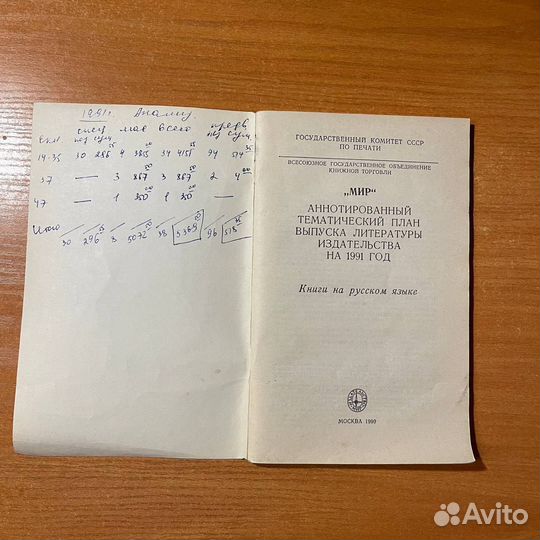 1991г. Анализ
спец мое всего предв
поз сум поз сум
14-35 30 286 4 3855 34 4151 94 514
37 — 3 867 3 867 2 4
47 — 1 350 1 350 —
Итого
30 296 8 5072 38 5369 96 518
ГОСУДАРСТВЕННЫЙ КОМИТЕТ СССР
ПО ПЕЧАТИ
ВСЕСОЮЗНОЕ ГОСУДАРСТВЕННОЕ ОБЪЕДИНЕНИЕ
КНИЖНОЙ ТОРГОВЛИ
„МИР“
АННОТИРОВАННЫЙ
ТЕМАТИЧЕСКИЙ ПЛАН
ВЫПУСКА ЛИТЕРАТУРЫ
ИЗДАТЕЛЬСТВА
НА 1991 ГОД
Книги на русском языке
МОСКВА 1990
Avito